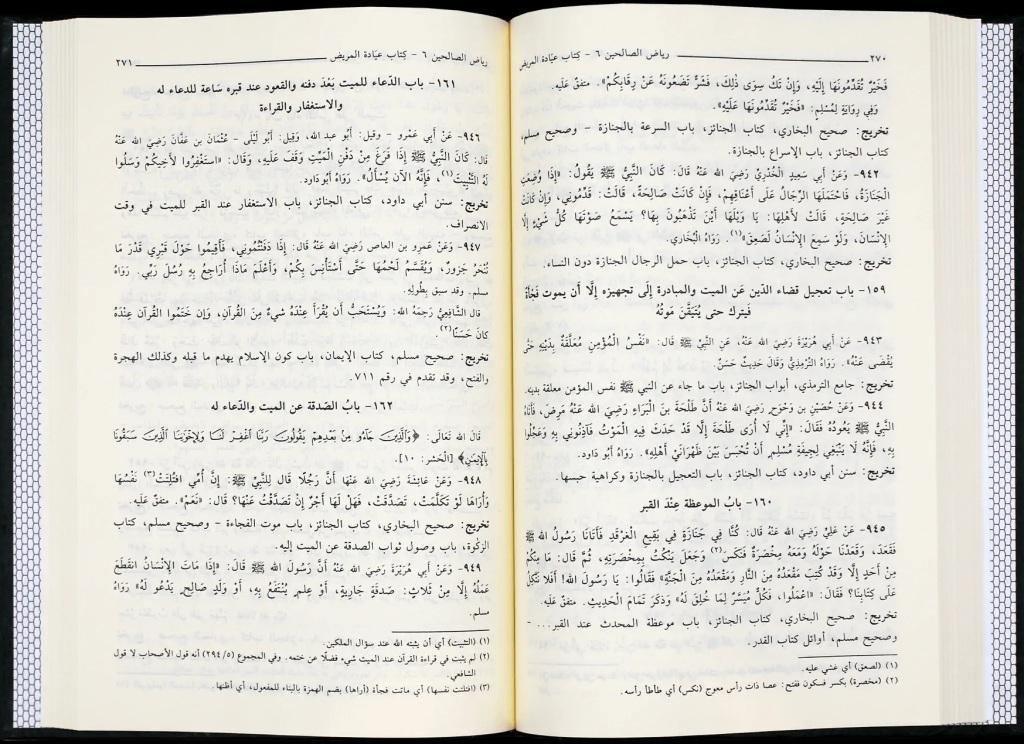 ٢٧٠ رياض الصالحين ٦ - كتاب عيادة المريض
فَخَيْرٌ تُقَدِّمُونَهَا إِلَيْهِ، وَإِنْ تَكُ سِوَى ذَلِكَ، فَشَرٌّ تَضَعُونَهُ عَنْ رِقَابِكُمْ». متفقٌ عَلَيه.
وَفِي رِوَايَةٍ لِمُسْلِمٍ: «فَخَيْرٌ تُقَدِّمُونَهَا عَلَيْهِ».
تخريج: صحيح البخاري، كتاب الجنائز، باب السرعة بالجنازة - وصحيح مسلم،
كتاب الجنائز، باب الإسراع بالجنازة.
٩٤٢- وَعَنْ أَبِي سَعِيدٍ الْخُدْرِيِّ رَضِيَ الله عَنْهُ قَالَ: كَانَ النَّبِيُّ ﷺ يَقُولُ: «إِذَا وُضِعَتِ
الْجَنَازَةُ، فَاحْتَمَلَهَا الرِّجَالُ عَلَى أَعْنَاقِهِمْ، فَإِنْ كَانَتْ صَالِحَةً، قَالَتْ: قَدِّمُونِي، وَإِنْ كَانَتْ
غَيْرَ صَالِحَةٍ، قَالَتْ لِأَهْلِهَا: يَا وَيْلَهَا أَيْنَ تَذْهَبُونَ بِهَا؟ يَسْمَعُ صَوْتَهَا كُلُّ شَيْءٍ إِلَّا
الْإِنْسَانَ، وَلَوْ سَمِعَ الْإِنْسَانُ لَصَعِقَ»(١). رَوَاهُ الْبُخَارِي.
تخريج: صحيح البخاري، كتاب الجنائز، باب حمل الرجال الجنازة دون النساء.
١٥٩- باب تعجيل قضاء الدّين عَن الميت والمبادرة إِلَى تجهيزه إلَّا أن يموت فَجْأَةً
فَيترك حتى يُتَيَقَّنَ مَوْتُهُ
٩٤٣- عَنْ أَبِي هُرَيْرَةَ رَضِيَ الله عَنْهُ، عَنِ النَّبِيِّ ﷺ قَالَ: «نَفْسُ الْمُؤْمِنِ مُعَلَّقَةٌ بِدَيْنِهِ حَتَّى
يُقْضَى عَنْهُ». رَوَاهُ التِّرْمِذِيُّ وَقَالَ حَدِيثٌ حَسَنٌ.
تخريج: جامع الترمذي، أبواب الجنائز، باب ما جاء عن النبي ﷺ نفس المؤمن معلقة بدينه.
٩٤٤- وَعَنْ حُصَيْنِ بْنِ وَحْوَحٍ رَضِيَ الله عَنْهُ أَنَّ طَلْحَةَ بْنَ الْبَرَاءِ رَضِيَ الله عَنْهُ مَرِضَ، فَأَتَاهُ
النَّبِيُّ ﷺ يَعُودُهُ فَقَالَ: «إِنِّي لَا أُرَى طَلْحَةَ إِلَّا قَدْ حَدَثَ فِيهِ الْمَوْتُ فَآذِنُونِي بِهِ وَعَجِّلُوا
بِهِ، فَإِنَّهُ لَا يَنْبَغِي لِجِيفَةِ مُسْلِمٍ أَنْ تُحْبَسَ بَيْنَ ظَهْرَانَيْ أَهْلِهِ». رَوَاهُ أَبُو دَاوُد.
تخريج: سنن أبي داود، كتاب الجنائز، باب التعجيل بالجنازة وكراهية حبسها.
١٦٠- بابُ الموعظة عِنْدَ القبر
٩٤٥- عَنْ عَلِيٍّ رَضِيَ الله عَنْهُ قَالَ: كُنَّا فِي جَنَازَةٍ فِي بَقِيعِ الْغَرْقَدِ فَأَتَانَا رَسُولُ الله ﷺ
فَقَعَدَ، وَقَعَدْنَا حَوْلَهُ وَمَعَهُ مِخْصَرَةٌ فَنَكَسَ(٢) وَجَعَلَ يَنْكُتُ بِمِخْصَرَتِهِ، ثُمَّ قَالَ: مَا مِنْكُمْ
مِنْ أَحَدٍ إِلَّا وَقَدْ كُتِبَ مَقْعَدُهُ مِنَ النَّارِ وَمَقْعَدُهُ مِنَ الْجَنَّةِ» فَقَالُوا: يَا رَسُولَ الله! أَفَلَا نَتَّكِلُ
عَلَى كِتَابِنَا؟ فَقَالَ: «اعْمَلُوا، فَكُلٌّ مُيَسَّرٌ لِمَا خُلِقَ لَهُ» وَذَكَرَ تَمَامَ الْحَدِيثِ. متفقٌ عَلَيه.
تخريج: صحيح البخاري، كتاب الجنائز، باب موعظة المحدث عند القبر... -
وصحيح مسلم، أوائل كتاب القدر.
(١) (لصعق) أي غشي عليه.
(٢) (مخصرة) بكسر فسكون ففتح: عصا ذات رأس معوج (نكس) أي طأطأ رأسه.
رياض الصالحين ٦ - كتاب عيَادة المريض ٢٧١
١٦١- باب الدّعاء للميت بَعْدَ دفنه والقعود عند قبره سَاعة للدعاء له
والاستغفار والقراءة
٩٤٦- عَنْ أَبِي عَمْرٍو - وقيل: أَبُو عبد الله، وَقِيل: أَبُو لَيْلَى - عُثْمَانَ بن عَفَّانَ رَضِيَ الله عَنْهُ
قَالَ: كَانَ النَّبِيُّ ﷺ إِذَا فَرَغَ مِنْ دَفْنِ الْمَيِّتِ وَقَفَ عَلَيْهِ، وَقَالَ: «اسْتَغْفِرُوا لِأَخِيكُمْ وَسَلُوا
لَهُ التَّثْبِيتَ(١)، فَإِنَّهُ الْآنَ يُسْأَلُ». رَوَاهُ أَبو دَاوُد.
تخريج: سنن أبي داود، كتاب الجنائز، باب الاستغفار عند القبر للميت في وقت
الانصراف.
٩٤٧- وَعَنْ عَمْرِو بن العاص رَضِيَ الله عَنْهُ قَالَ: إِذَا دَفَنْتُمُونِي، فَأَقِيمُوا حَوْلَ قَبْرِي قَدْرَ مَا
تُنْحَرُ جَزُورٌ، وَيُقَسَّمُ لَحْمُهَا حَتَّى أَسْتَأْنِسَ بِكُمْ، وَأَعْلَمَ مَاذَا أُرَاجِعُ بِهِ رُسُلَ رَبِّي. رَوَاهُ
مسلم. وقد سبق بِطُولِهِ.
قال الشَّافِعِيُّ رَحِمَهُ الله: وَيُسْتَحَبُّ أَنْ يُقْرَأَ عِنْدَهُ شَيءٌ مِنَ الْقُرآنِ، وَإِن خَتَمُوا القُرآن عِنْدَهُ
كانَ حَسَنًا(٢).
تخريج: صحيح مسلم، كتاب الإيمان، باب كون الإسلام يهدم ما قبله وكذلك الهجرة
والفتح، وقد تقدم في رقم ٧١١.
١٦٢- بابُ الصّدقة عن الميت والدّعاء له
قَالَ الله تَعَالَى: ﴿وَالَّذِينَ جَاءُو مِنْ بَعْدِهِمْ يَقُولُونَ رَبَّنَا اغْفِرْ لَنَا وَلِإِخْوَانِنَا الَّذِينَ سَبَقُونَا
بِالْإِيمَانِ﴾ [الحَشر: ١٠].
٩٤٨- وَعَنْ عَائِشَةَ رَضِيَ الله عَنْهَا أَنَّ رَجُلًا قَالَ لِلنَّبِيِّ ﷺ: إِنَّ أُمِّي افْتُلِتَتْ(٣) نَفْسُهَا
وَأُرَاهَا لَوْ تَكَلَّمَتْ، تَصَدَّقَتْ، فَهَلْ لَهَا أَجْرٌ إِنْ تَصَدَّقْتُ عَنْهَا؟ قال: «نَعَمْ». متفقٌ عَلَيه.
تخريج: صحيح البخاري، كتاب الجنائز، باب موت الفجاءة - وصحيح مسلم، كتاب
الزكوة، باب وصول ثواب الصدقة عن الميت إليه.
٩٤٩- وَعَنْ أَبِي هُرَيْرَةَ رَضِيَ الله عَنْهُ أَنَّ رَسُولَ الله ﷺ قَالَ: «إِذَا مَاتَ الْإِنْسَانُ انْقَطَعَ
عَمَلُهُ إِلَّا مِنْ ثَلَاثٍ: صَدَقَةٍ جَارِيَةٍ، أَوْ عِلْمٍ يُنْتَفَعُ بِهِ، أَوْ وَلَدٍ صَالِحٍ يَدْعُو لَهُ» رَوَاهُ
مسلم.
(١) (التثبيت) أي أن يثبته الله عند سؤال الملكين.
(٢) لم يثبت في قراءة القرآن عند الميت شيء فضلًا عن ختمه. وفي المجموع (٢٩٤/٥) أنه قول الأصحاب لا قول
الشافعي.
(٣) (افتلتت نفسها) أي ماتت فجأة (أراها) بضم الهمزة بالبناء للمفعول، أي أظنها.